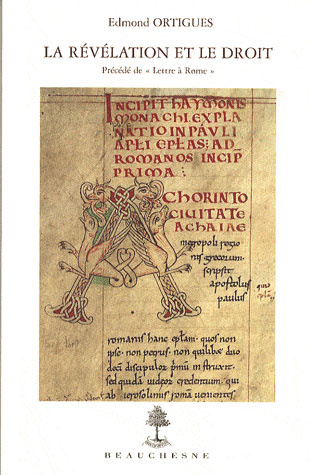 Edmond ORTIGUES
LA RÉVÉLATION ET LE DROIT
Précédé de « Lettre à Rome »
INCIPIT HAYMONIS
MONACHI EXPLA
NATIO IN PAULI
APŁI EPŁAS; AD
ROMANOS INCIP̄
PRIMA:
A CHORINTO
CIUITATE
ACHAIAE
metropoli regio
nis grecorum
scripsit
apostolus
paulus
romanis hanc epłam. quos non
ipse. non petrus. non quilibet duo
deci discipulor primū instruxit.
sed quidā iudeor credentium. qui
ab ierosolimis romā uenientes
BEAUCHESNE